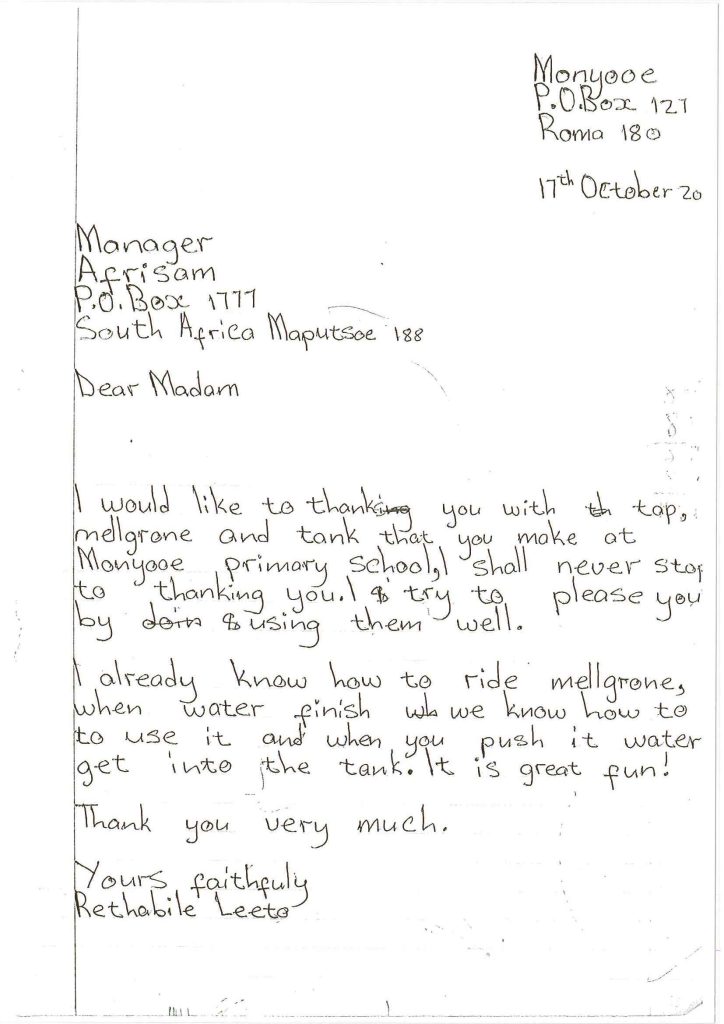 Monyooe
P.O.Box 127
Roma 180
17th October 20
Manager
Afrisam
P.O.Box 1777
South Africa Maputsoe 188
Dear Madam
I would like to thanking you with th tap,
mellgrone and tank that you make at
Monyooe primary school, I shall never stop
to thanking you. I try to please you
by doin using them well.
I already know how to ride mellgrone,
when water finish wh we know how to
to use it and when you push it water
get into the tank. It is great fun!
Thank you very much.
Yours faithfuly
Rethabile Leeto